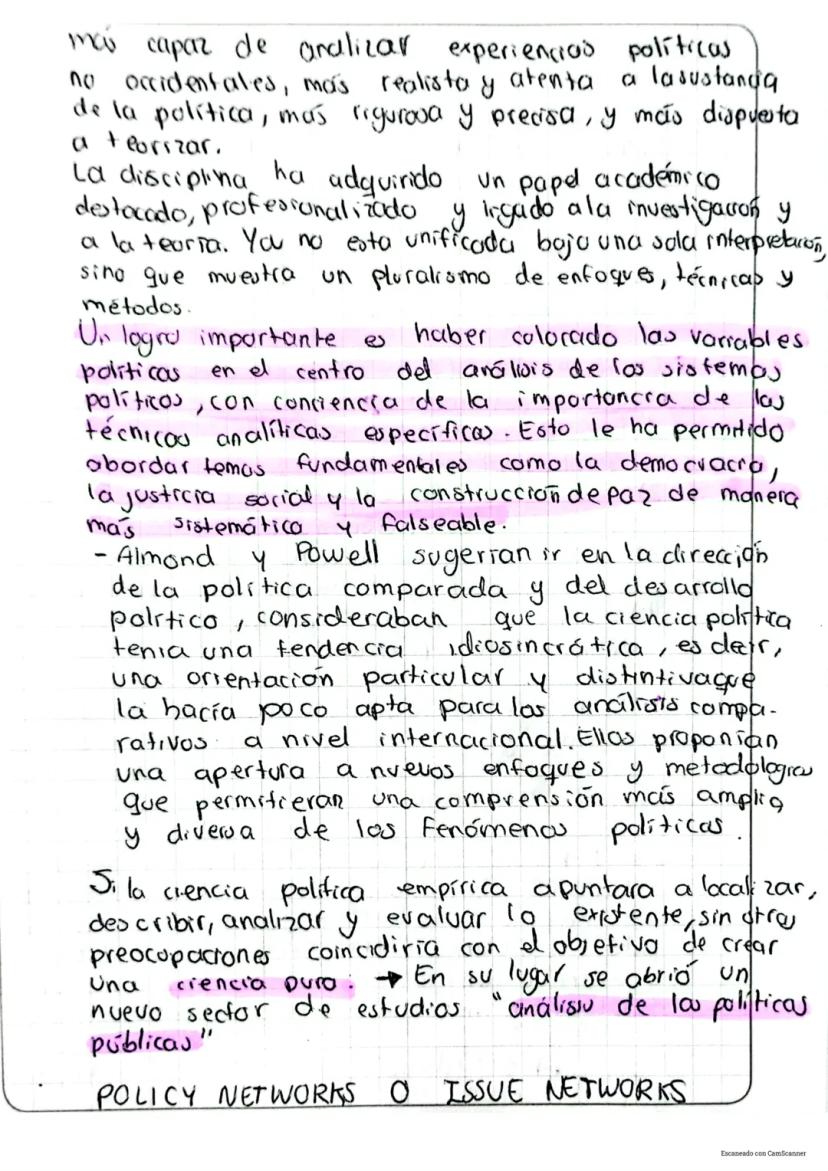 más capaz de analizar experiencias políticas
no occidentales, más realista y atenta a la sustancia
de la política, más rigurosa y precisa, y más dispuesta
a teorizar.
La disciplina ha adquirido un papel académico
destacado, profesionalizado y ligado a la investigación y
a la teoría. Ya no esta unificada bajo una sola interpretación,
sino que muestra un pluralismo de enfoques, técnicas y
métodos.
Un logro importante es haber colorado las variables
políticas en el centro del análisis de los sistemas
políticos, con conciencia de la importancia de las
técnicas analíticas específicas. Esto le ha permitido
abordar temas fundamentales como la democracia,
la justicia social y la construcción de paz de manera
más sistemática y falseable.
- Almond y Powell sugerian ir en la dirección
de la política comparada y del desarrollo
político, consideraban que la ciencia política
tenia una tendencia idiosincrática, es decir,
una orientación particular y distintiva que
la hacía poco apta para los análisis compa-
rativos a nivel internacional. Ellos proponían
una apertura a nuevos enfoques y metodologías
que permitieran una comprensión más amplia
y diversa de los fenómenos políticas.
Si la ciencia política empírica apuntara a localizar,
describir, analizar y evaluar lo existente, sin otras
preocupaciones coincidiría con el objetivo de crear
una ciencia pura. → En su lugar se abrió un
nuevo sector de estudios "análisis de las políticas
públicas"
POLICY NETWORKS O ISSUE NETWORKS
Escaneado con CamScanner